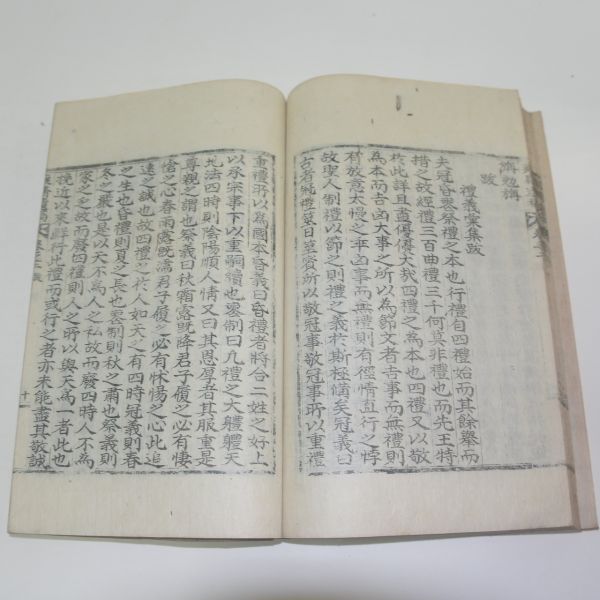 濟勉講
跋
禮義堂集跋
夫冠昏喪祭禮之本也行禮自四禮始而其餘擧而
措之故經禮三百曲禮三千何莫非禮也而先王特
於此詳且直優優大哉四禮之為本也四禮又以敬
為本而吉凶大事之所以為節文者吉事而無禮則
有放意太慢之凶事而無禮則有徑情直行之悖
故聖人制禮以節之則禮之義於斯極備矣冠義曰
古者冠禮筮日筮賓所以敬冠事敬冠事所以重禮
重禮所以為國本昏義曰昏禮者將合二姓之好上
以承宗事下以重嗣續也喪制曰凡禮之大軆軆天
地法四時則陰陽順人情又曰其恩厚者其服重是
尊親之謂也祭義曰秋霜露旣降君子履之必有悽
愴之心春雨露旣濡君子履之必有怵惕之心此追
遠之誠也故四禮之於人如天之有四時冠義則春
之生也昏禮則夏之長也喪制則秋之肅也祭義則
冬之藏也是以天不為人之私故而廢四時人不為
家之之故而廢四禮則人之所以與天為一者此也
挽近以來鮮行此禮而或行之者亦未能盡其敬誠
十一